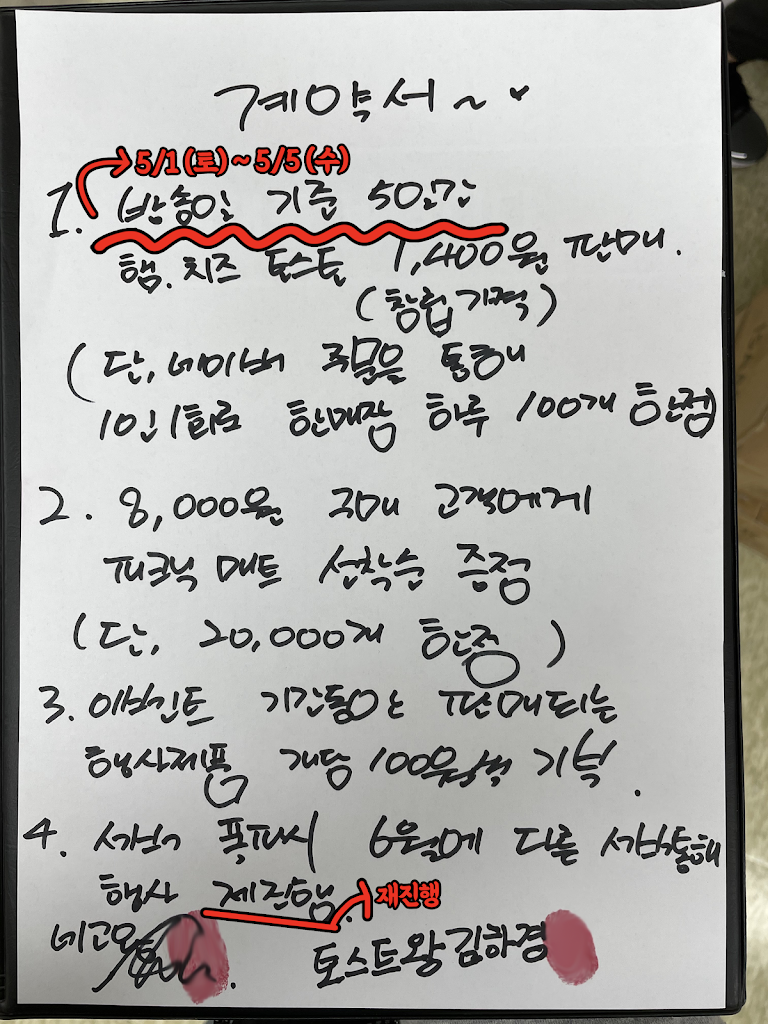 계약서~
5/1(토)~5/5(수)
1. 방송일 기준 5일간
햄.치즈 토스트 1,400원 판매.
(창립기격)
(단, 네이버 주문을 통해
1인 1회로 한매장 하루 100개 한정)
2. 8,000원 구매 고객에게
피크닉 매트 선착순 증정
(단, 20,000개 한정)
3. 이벤트 기간동안 판매되는
행사제품 개당 100원씩 기부.
4. 서버 폭파시 6월에 다른 서버통해
행사 제진행. 재진행
네고왕 토스트왕 김하경